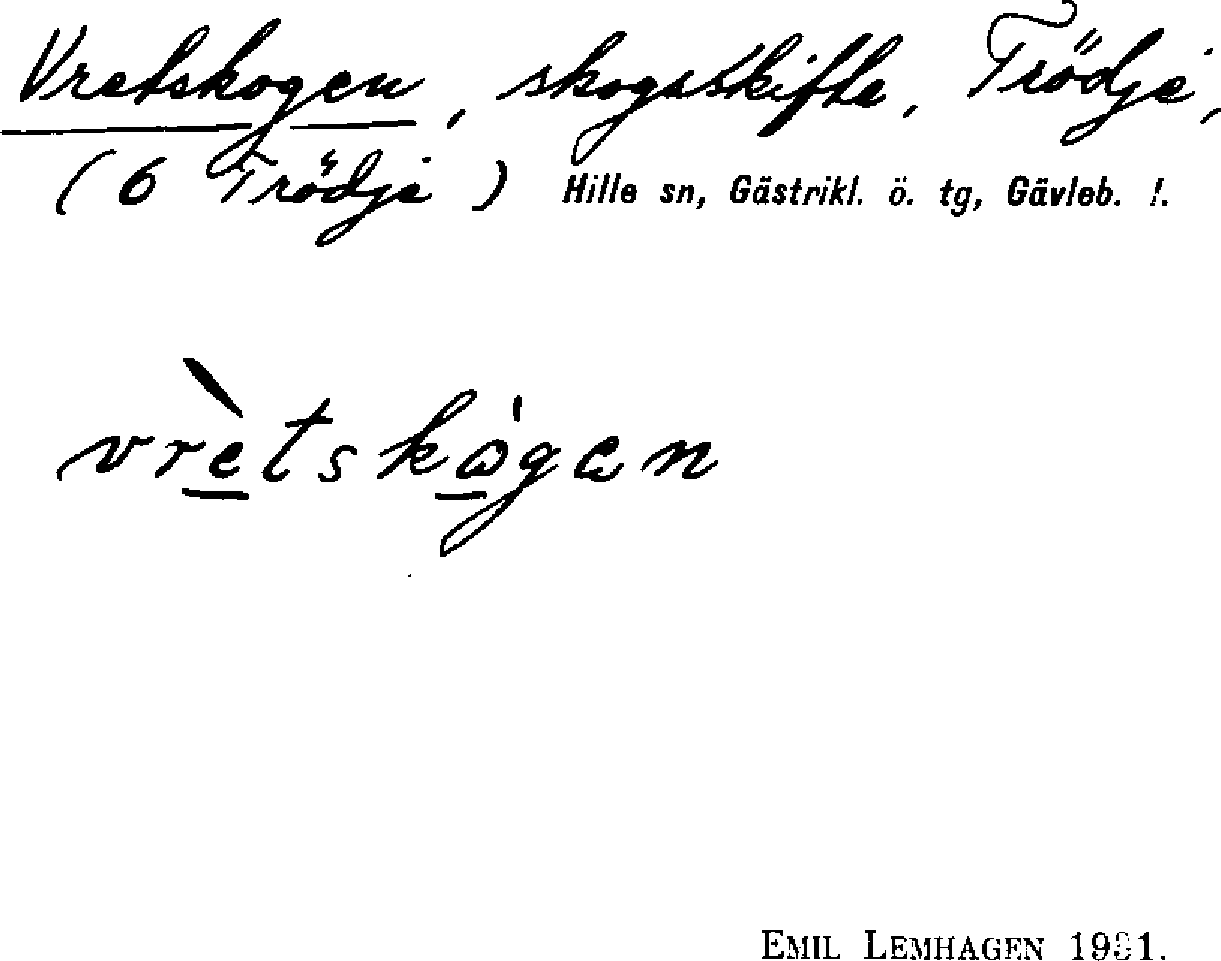 Vretskogen, skogsskifte, Trödje,
(6 Trödje) Hille sn, Gästrikl. ö. tg, Gävleb. !.
vrètskògen
EMIL LEMHAGEN 1931.